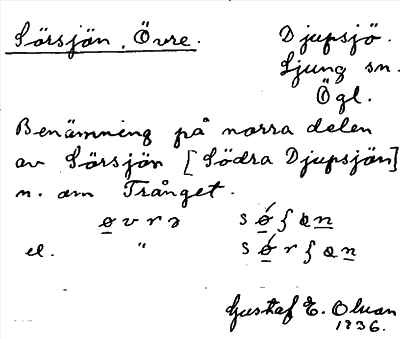 Sörsjön, Övre.
Djupsjö.
Ljung sn.
Ögl.
Benämning på norra delen
av Sörsjön [Södra Djupsjön]
n. om Trånget.
el. "
Gustaf E. Olsson
1936.